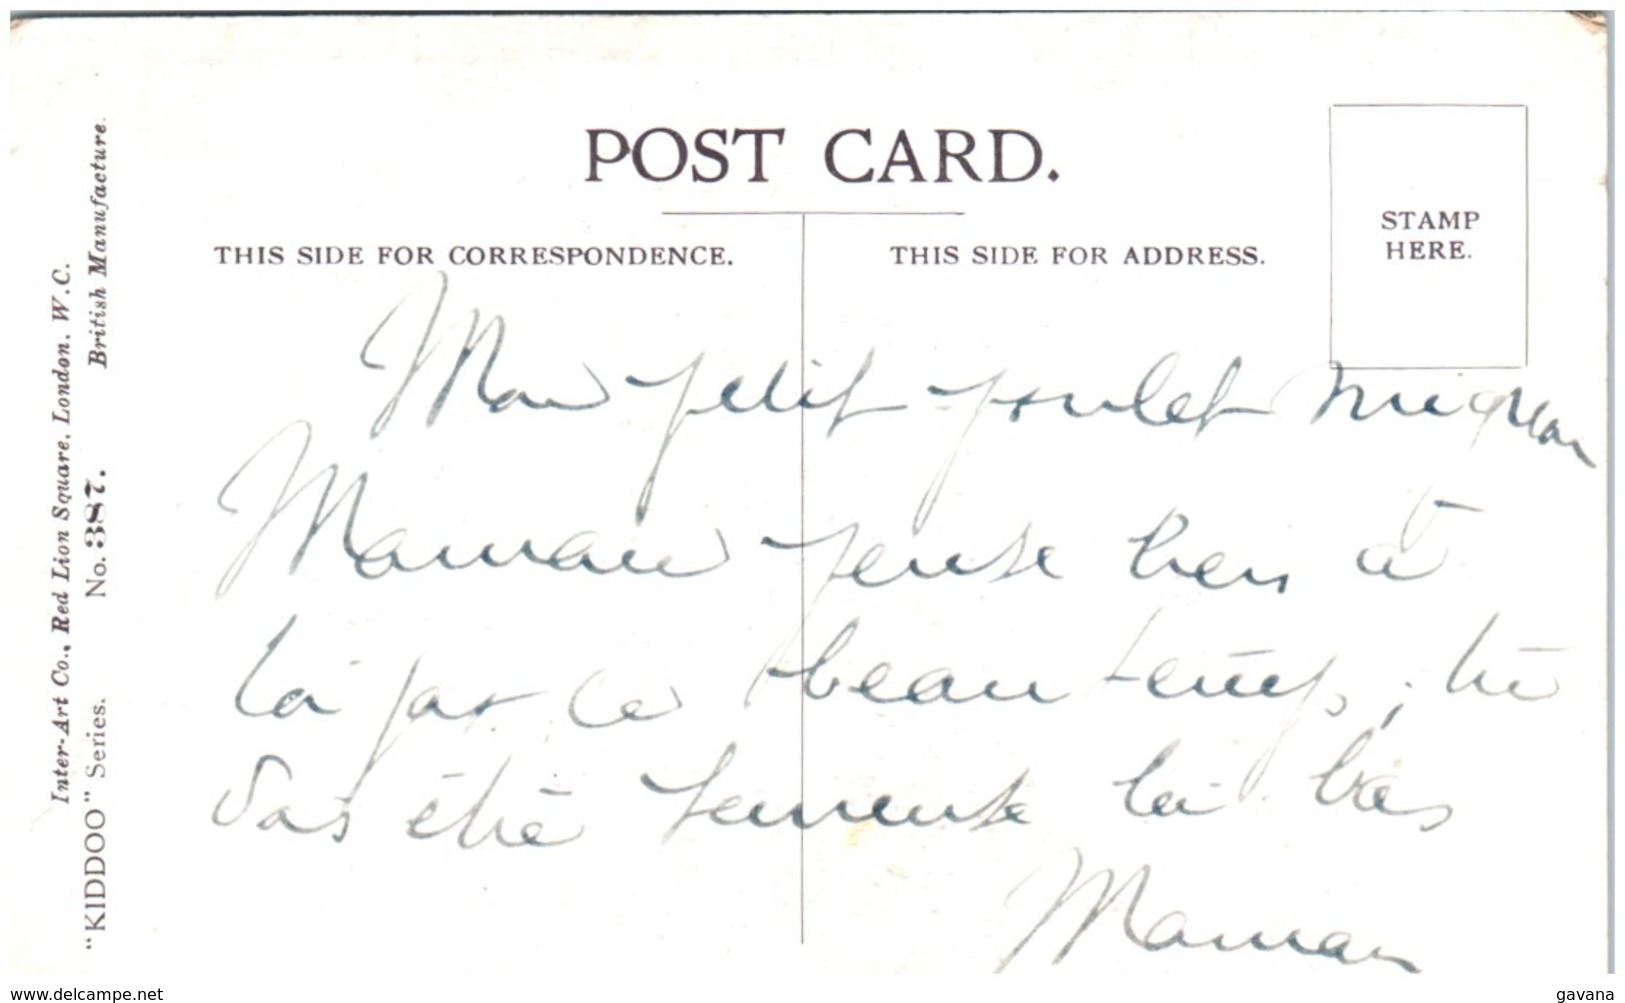 POST CARD.
STAMP
HERE.
THIS SIDE FOR CORRESPONDENCE.
THIS SIDE FOR ADDRESS.
Mon petit poulet mignon
Maman pense bien à
toi par ce beau temps, tu
vas être là bas
Maman
Inter-Art Co., Red Lion Square, London. W.C.
"KIDDOO" Series. No. 387. British Manufacture.
www.delcampe.net
gavana